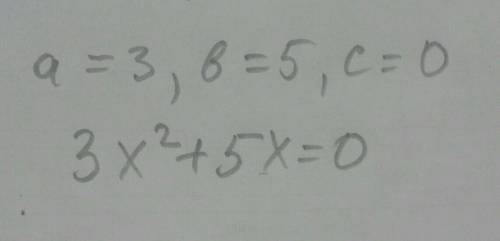 a = 3, b = 5, c = 0
3x² + 5x = 0